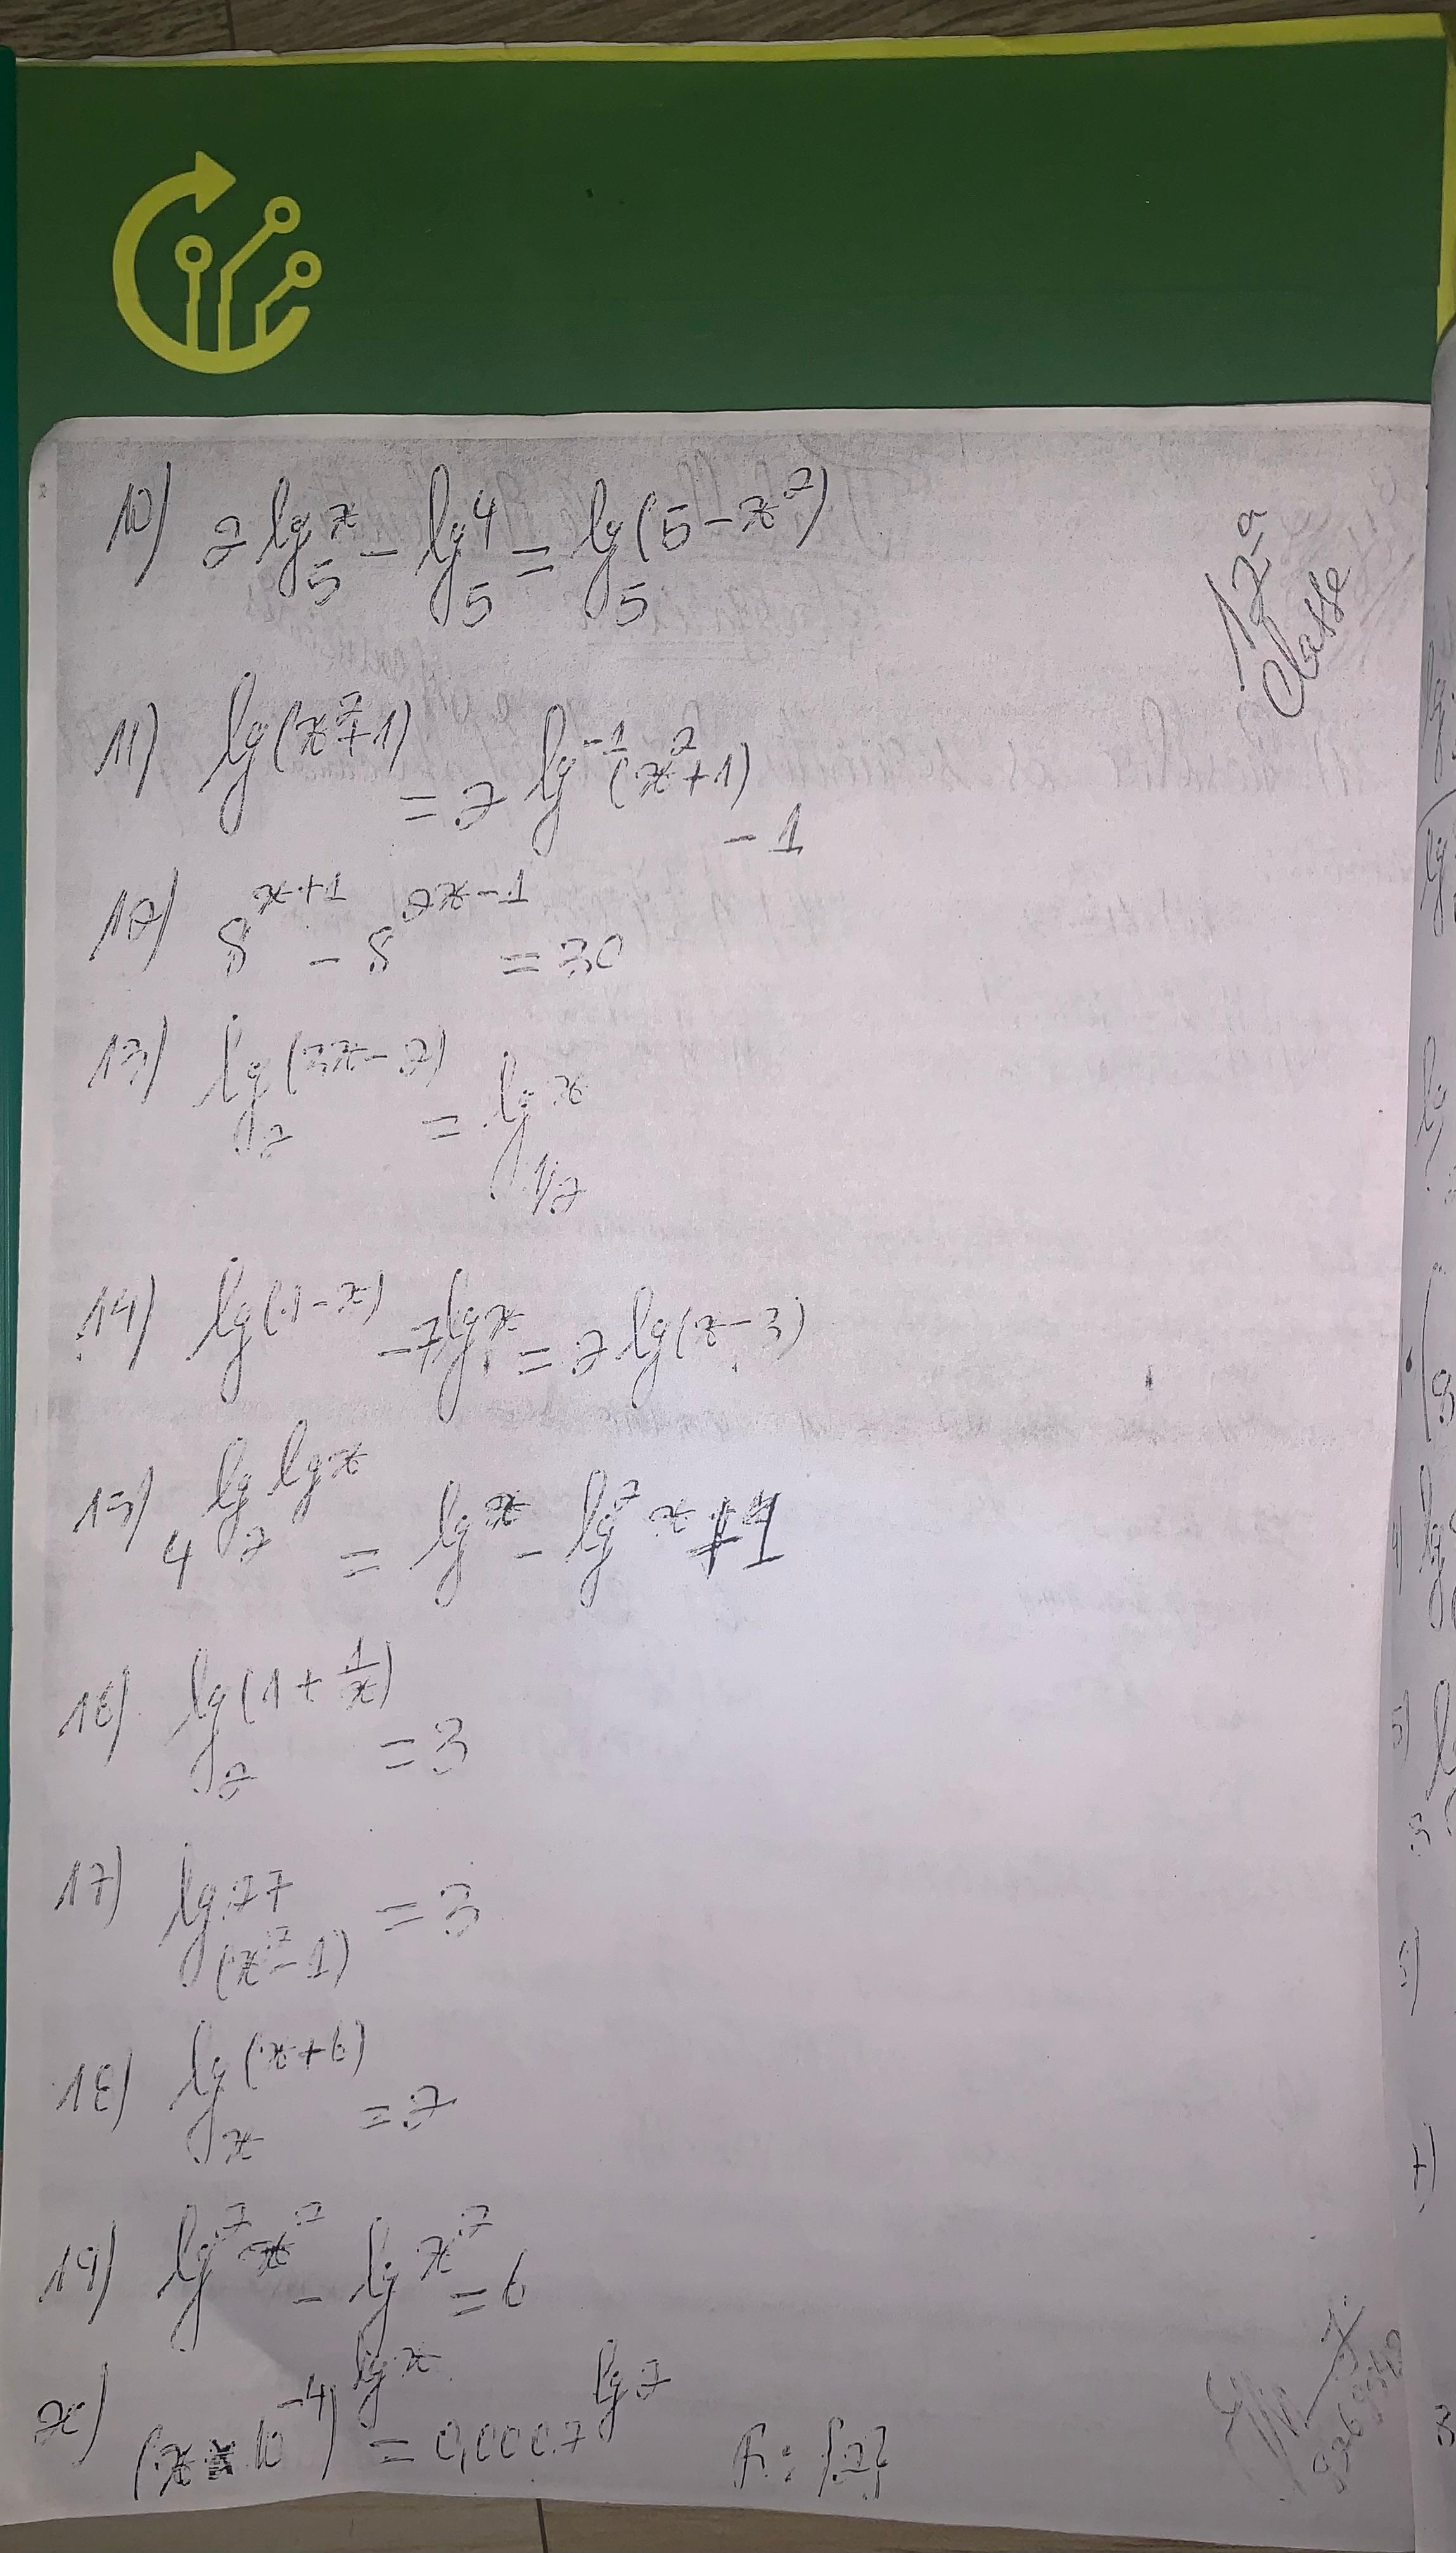 10) 2 lg₅ x - lg₅ 4 = lg₅ (5 - x²)
12ª
classe
11) lg(x²+1) = 2 lg⁻¹(x²+1) - 1
12) 8^(x+1) - 8^(2x-1) = 30
13) lg₂ (3x-2) = lg_(1/2) x
14) lg(1-x) - 7lg x = 2 lg(x-3)
15) 4^(lg₂ lg x) = lg x - lg² x + 1
16) lg₂ (1 + 1/x) = 3
17) lg_(x²-1) 27 = 3
18) lg_x (x+6) = 2
19) lg² x² - lg x² = 6
20) (x × 10⁻⁴)^(lg x) = 0,0002^(lg 2) R: {2}